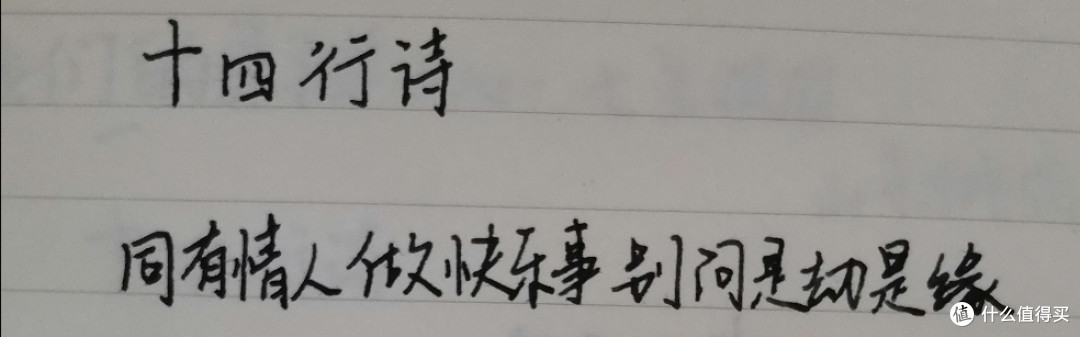 十四行诗
同有情人做快乐事别问是劫是缘
值 什么值得买